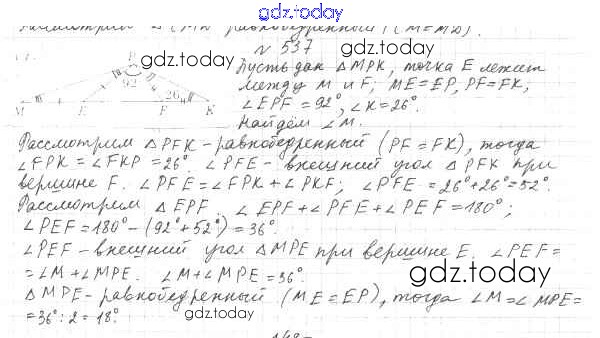 gdz.today
Рассмотрим равнобедренный (M=MD).
N 537
gdz.today
gdz.today
P
92
26
M E F K
Пусть дан △MPK, точка E лежит
между M и F; ME=EP, PF=FK;
∠EPF=92°, ∠K=26°.
Найдём ∠M.
Рассмотрим △PFK-равнобедренный (PF=FK), тогда
∠FPK=∠FKP=26°. ∠PFE-внешний угол △PFK при
вершине F. ∠PFE=∠FPK+∠PKF; ∠PFE=26°+26°=52°.
Рассмотрим △EPF. ∠EPF+∠PFE+∠PEF=180°;
∠PEF=180°-(92°+52°)=36°.
∠PEF-внешний угол △MPE при вершине E. ∠PEF=
=∠M+∠MPE. ∠M+∠MPE=36°.
gdz.today
△MPE-равнобедренный (ME=EP), тогда ∠M=∠MPE=
=36°:2=18°.
gdz.today